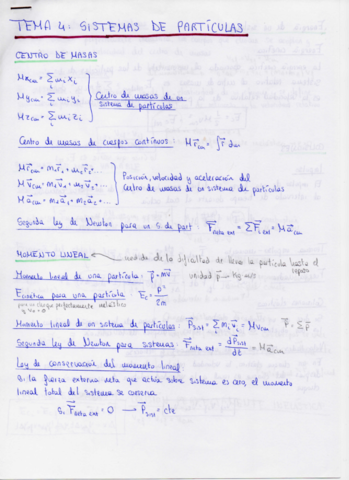 TEMA 4: SISTEMAS DE PARTÍCULAS
CENTRO DE MASAS
M x_cm = Σ_i m_i x_i
M y_cm = Σ_i m_i y_i
M z_cm = Σ_i m_i z_i
Centro de masas de un sistema de partículas
Centro de masas de cuerpos continuos: M r⃗_cm = ∫ r⃗ dm
M r⃗_cm = m₁r⃗₁ + m₂r⃗₂...
M v⃗_cm = m₁v⃗₁ + m₂v⃗₂...
M a⃗_cm = m₁a⃗₁ + m₂a⃗₂...
Posición, velocidad y aceleración del
centro de masas de un sistema de partículas
Segunda Ley de Newton para un s. de part: F⃗_neta ext = Σ F⃗_i ext = M a⃗_cm
MOMENTO LINEAL
medida de la dificultad de llevar la partícula hasta el reposo
Momento lineal de una partícula: p⃗ = mv⃗
unidad p⃗ → kg m/s
E cinética para una partícula E_c = p²/2m
Momento lineal de un sistema de partículas: P⃗_sist = Σ_i m_i v⃗_i = M v_cm
Segunda Ley de Newton para sistemas F⃗_neta ext = dP⃗_sist/dt = M a⃗_cm
Ley de conservación del momento lineal
Si la fuerza externa neta que actúa sobre sistema es cero, el momento
lineal total del sistema se conserva
Si F⃗_neta ext = 0 → P⃗_sist = cte